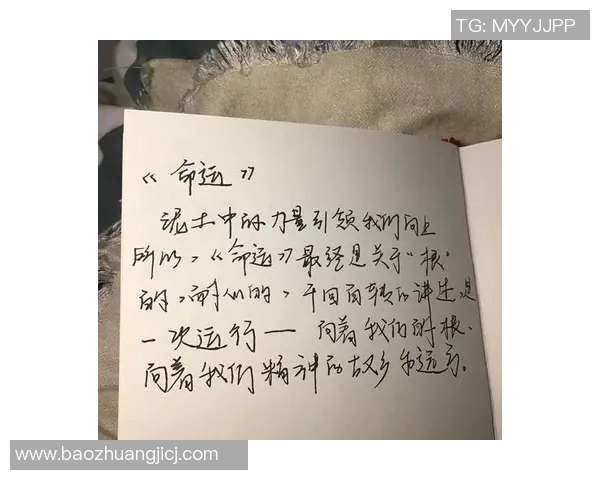 TG: MYYJJPP
《命运》
泥土中的力量引领我们向上
所以，《命运》最终是关于“根”
的，耐心的，千回百转的讲述，是
一次运行 — 向着我们的根，
向着我们精神的故乡和远方。
www.baozhuangjicj.com